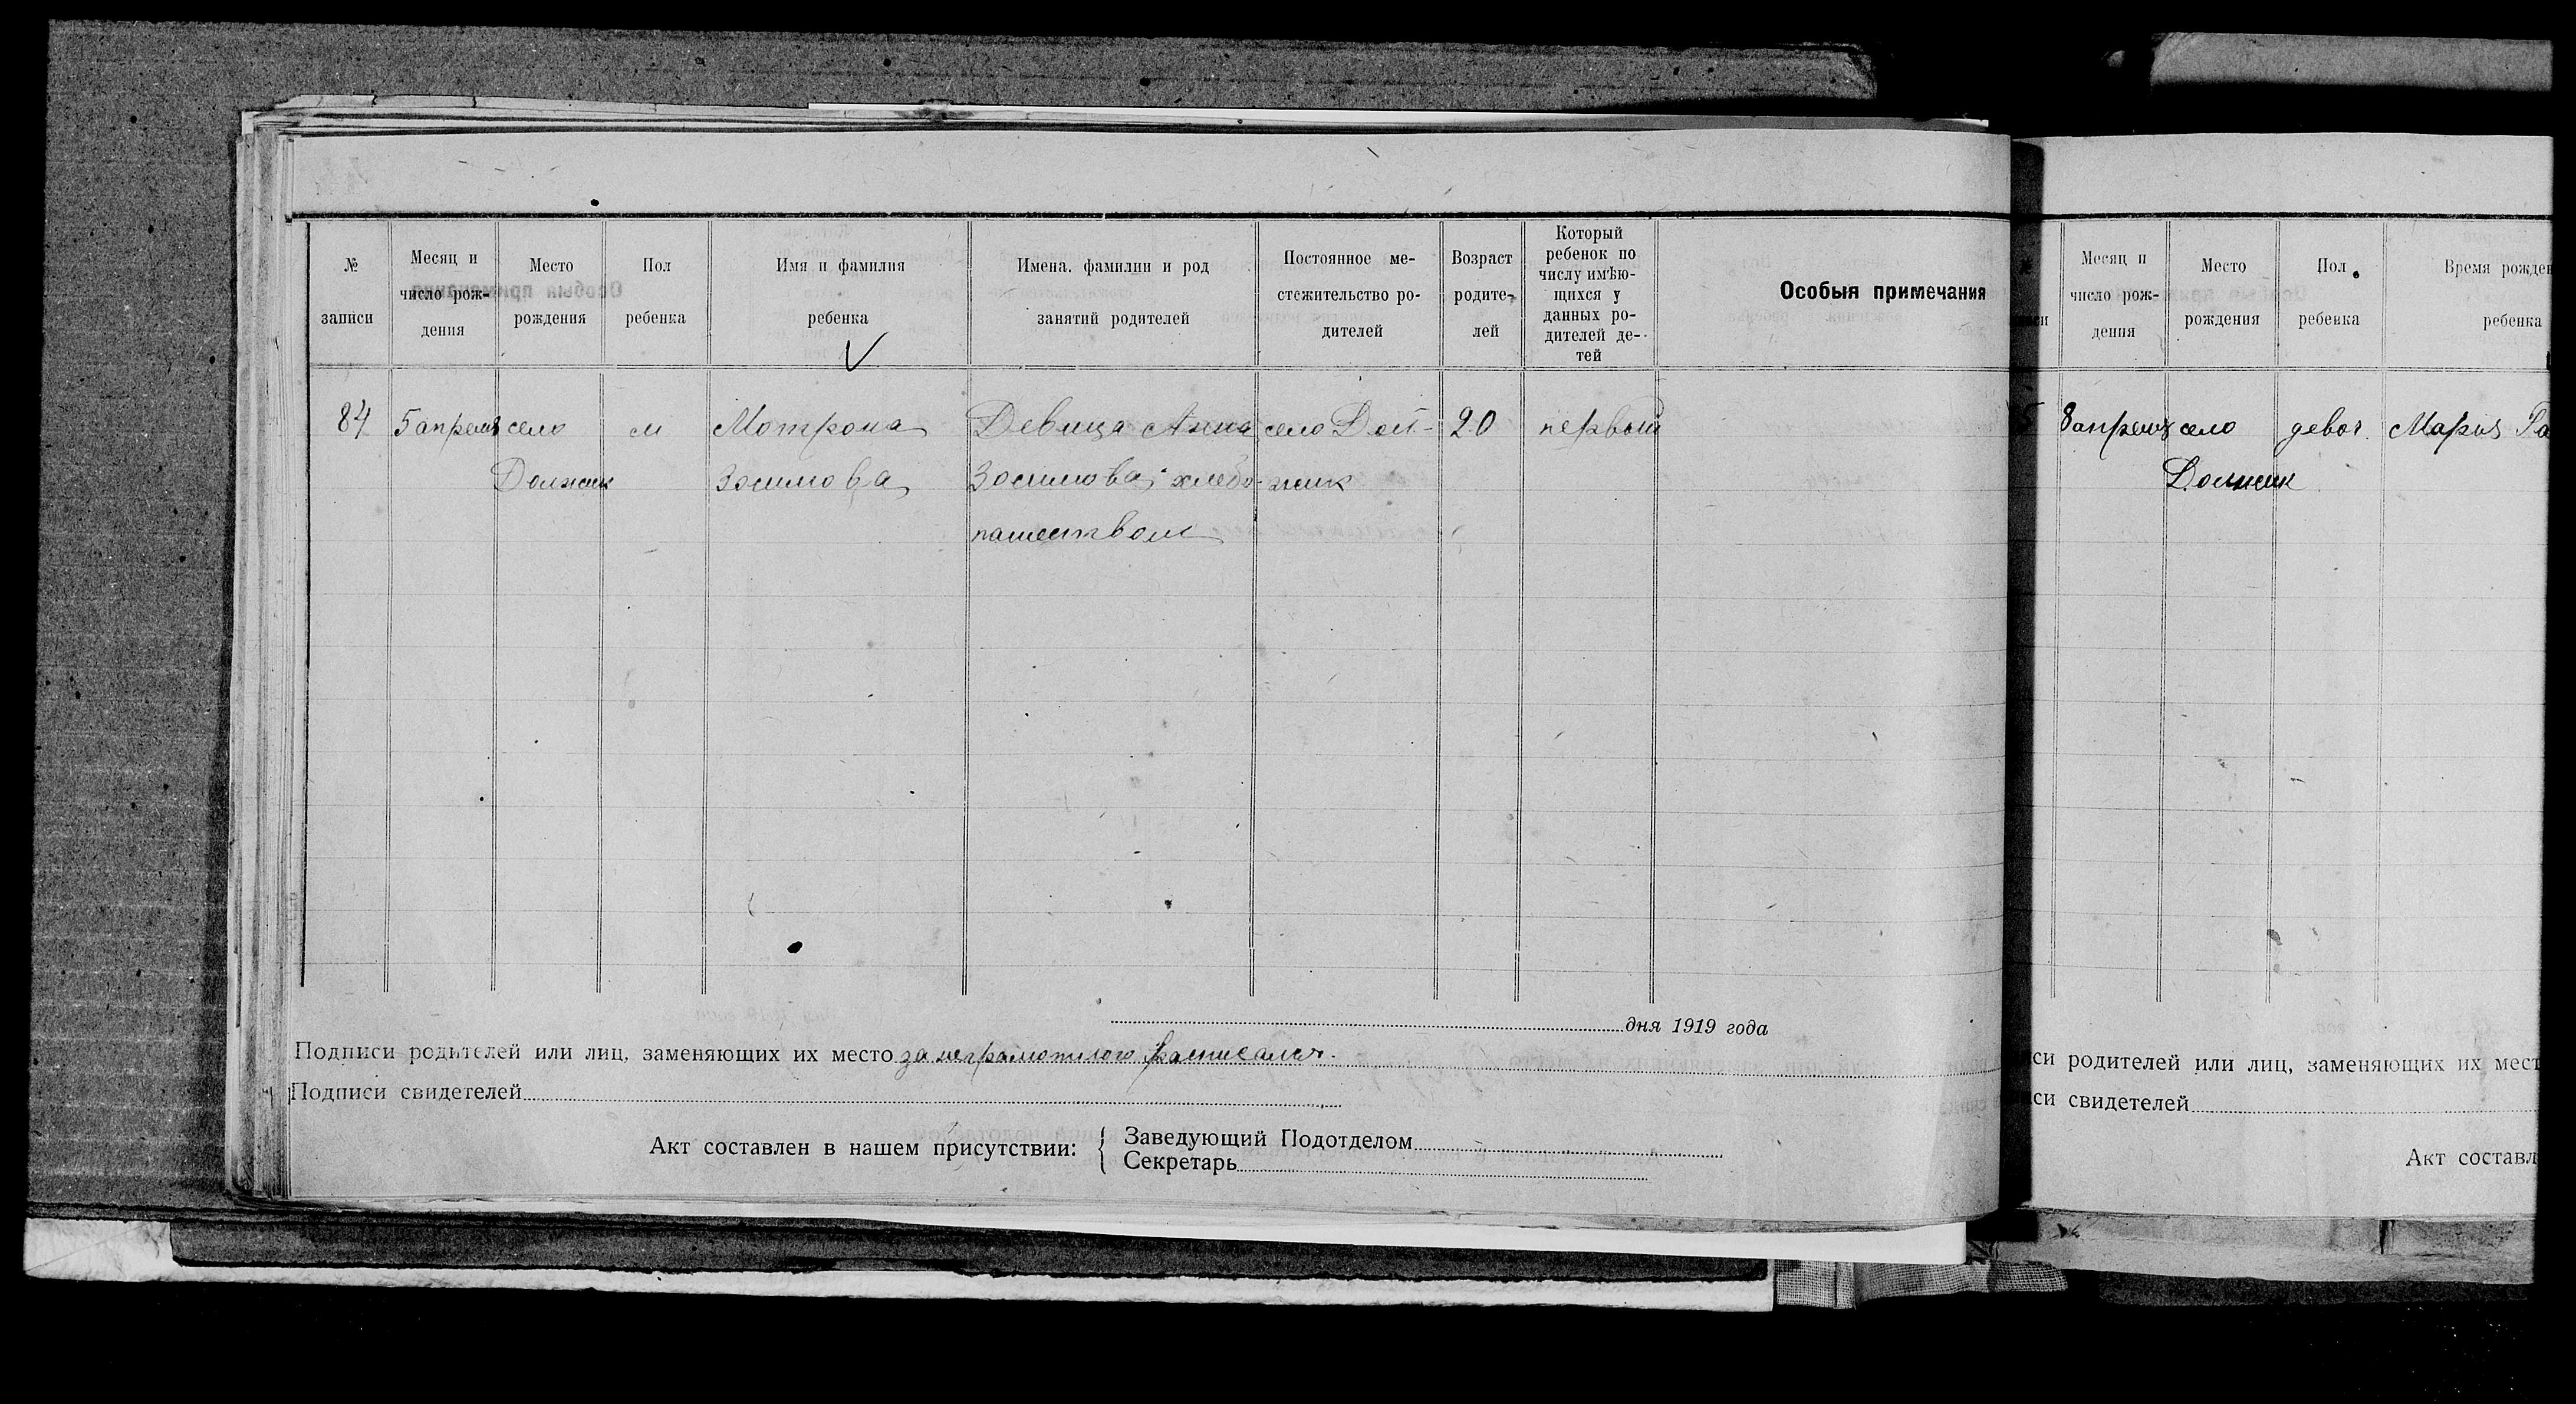 № записи
Месяц и число рож- дения
Место рождения
Пол ребенка
Имя и фамилия ребенка
Имена, фамилии и род занятий родителей
Постоянное ме- стожительство ро- дителей
Возраст родите- лей
Который ребенок по числу имѣю- щихся у данных ро- дителей де- тей
Особыя примечания
84 5 апреля село м Мотрона Девица Анна село Дол- 20 первый
Должик Зосимова Зосимова; хлебо- жик
пашеством
дня 1919 года
Подписи родителей или лиц, заменяющих их место за неграмотного расписался.
Подписи свидетелей
Акт составлен в нашем присутствии:
Заведующий Подотделом
Секретарь
Месяц и число рож- дения
Место рождения
Пол ребенка
Время рожден
ребенка
5 8 апреля село девоч. Мария Ра
Должик
си родителей или лиц, заменяющих их мест
си свидетелей
Акт составл